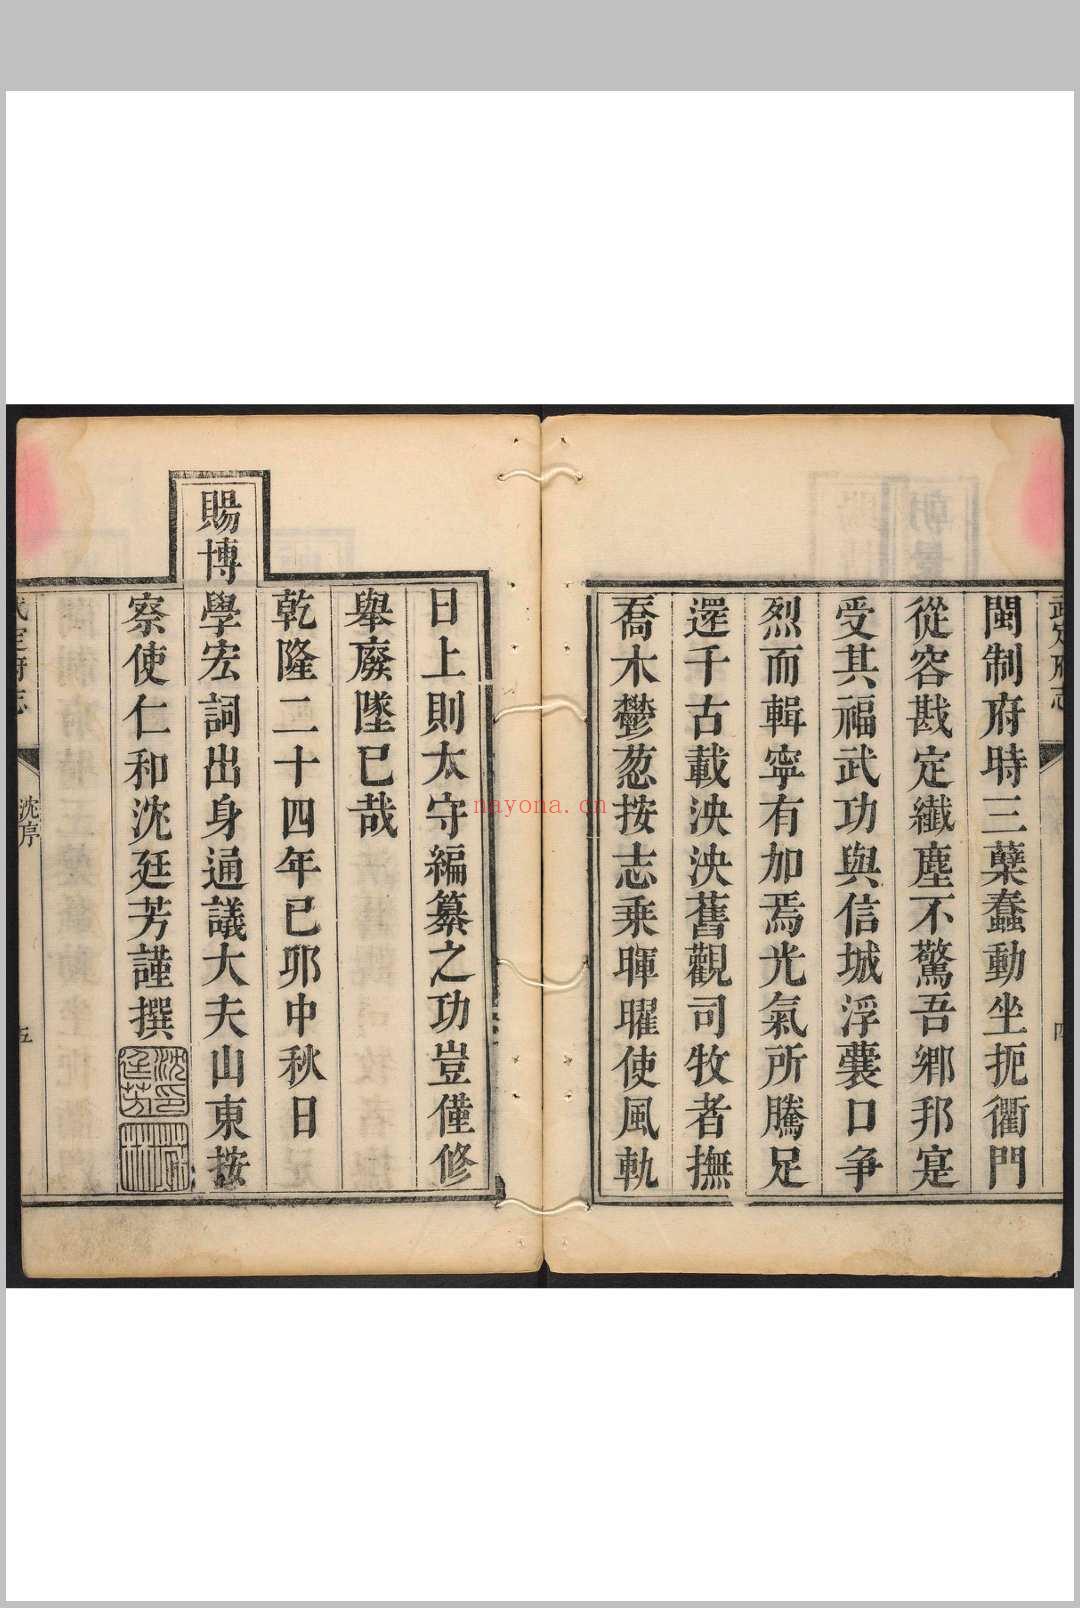 武定府志
四
閩制府時三蘖蠢動坐扼衢門
從容戡定纖塵不驚吾鄉邦寔
受其福武功與信城浮囊口争
烈而輯寧有加焉光氣所騰足
還千古載泱泱舊觀司牧者撫
喬木鬱葱按志乗暉曜使風軌
日上則太守編纂之功豈僅修
舉廢墜已哉
乾隆二十四年已夘中秋日
賜博學宏詞出身通議大夫山東按
察使仁和沈廷芳謹撰
沈印廷芳
武定府志
沈序
五
nayona.cn